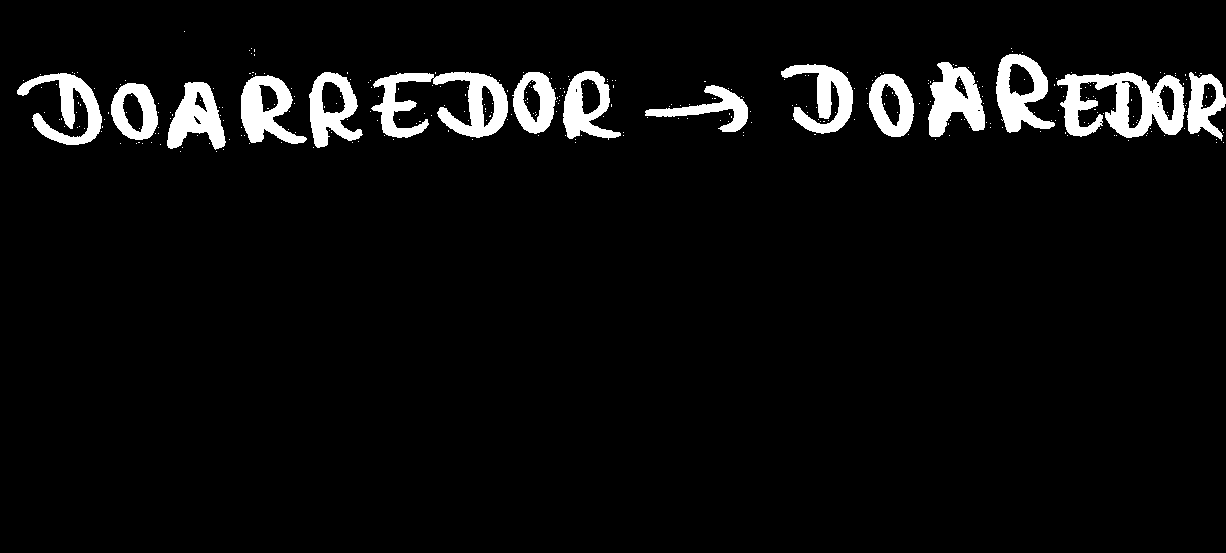 DOARREDOR → DOAREDOR